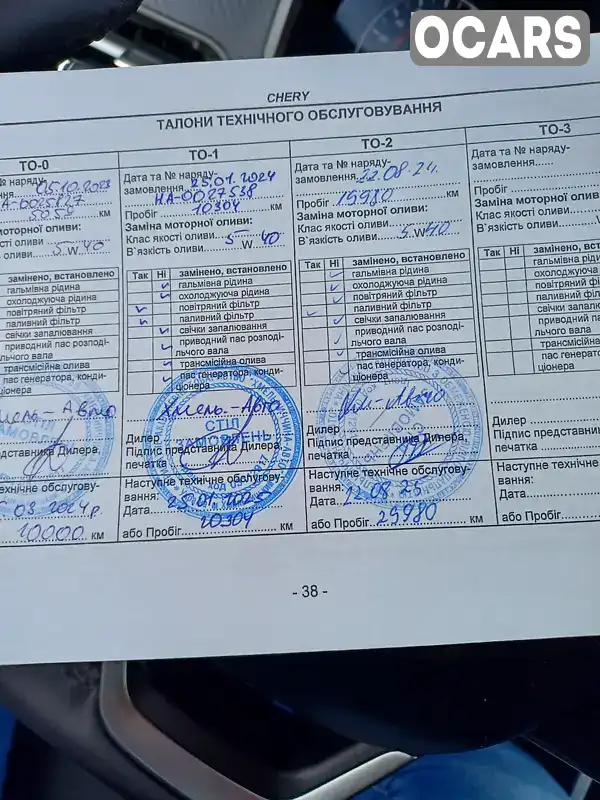 OCARS
CHERY
ТАЛОНИ ТЕХНІЧНОГО ОБСЛУГОВУВАННЯ
ТО-0
05.10.2023
НА-0025127
5059 км
оливи:
оливи
оливи 5 W 40
замінено, встановлено
гальмівна рідина
охолоджуюча рідина
повітряний фільтр
паливний фільтр
свічки запалювання
приводний пас розподі-
льчого вала
трансмісійна олива
пас генератора, конди-
ціонера
Дилера,
обслугову-
03.2024р.
10000 км
ТО-1
Дата та № наряду-
замовлення 25.01.2024
НА-0027538
Пробіг 10304 км
Заміна моторної оливи:
Клас якості оливи
В`язкість оливи 5 W 40
Так Ні замінено, встановлено
гальмівна рідина
охолоджуюча рідина
повітряний фільтр
паливний фільтр
свічки запалювання
приводний пас розподі-
льчого вала
трансмісійна олива
пас генератора, конди-
ціонера
Хмель-Авто
СТІЛ
ЗАМОВЛЕНЬ
Дилер
Підпис представника Дилера,
печатка
Наступне технічне обслугову-
вання:
Дата 25.01.2025
або Пробіг 20304 км
ТО-2
Дата та № наряду-
замовлення 22.08.24
Пробіг 19980 км
Заміна моторної оливи:
Клас якості оливи
В`язкість оливи 5 W 40
Так Ні замінено, встановлено
гальмівна рідина
охолоджуюча рідина
повітряний фільтр
паливний фільтр
свічки запалювання
приводний пас розподі-
льчого вала
трансмісійна олива
пас генератора, конди-
ціонера
Дилер
Підпис представника Дилера,
печатка
Наступне технічне обслугову-
вання:
Дата 22.08.25
або Пробіг 29980 км
ТО-3
Дата та № наряду-
замовлення
Пробіг
Заміна моторної
Клас якості оливи
В`язкість оливи
Так Ні замінено,
гальмівна рідина
охолоджуюча
повітряний фільтр
паливний фільтр
свічки запалюв
приводний пас
льчого вала
трансмісійна
пас генератор
ціонера
Дилер
Підпис представника
печатка
Наступне технічне
вання:
Дата
або Пробіг
- 38 -